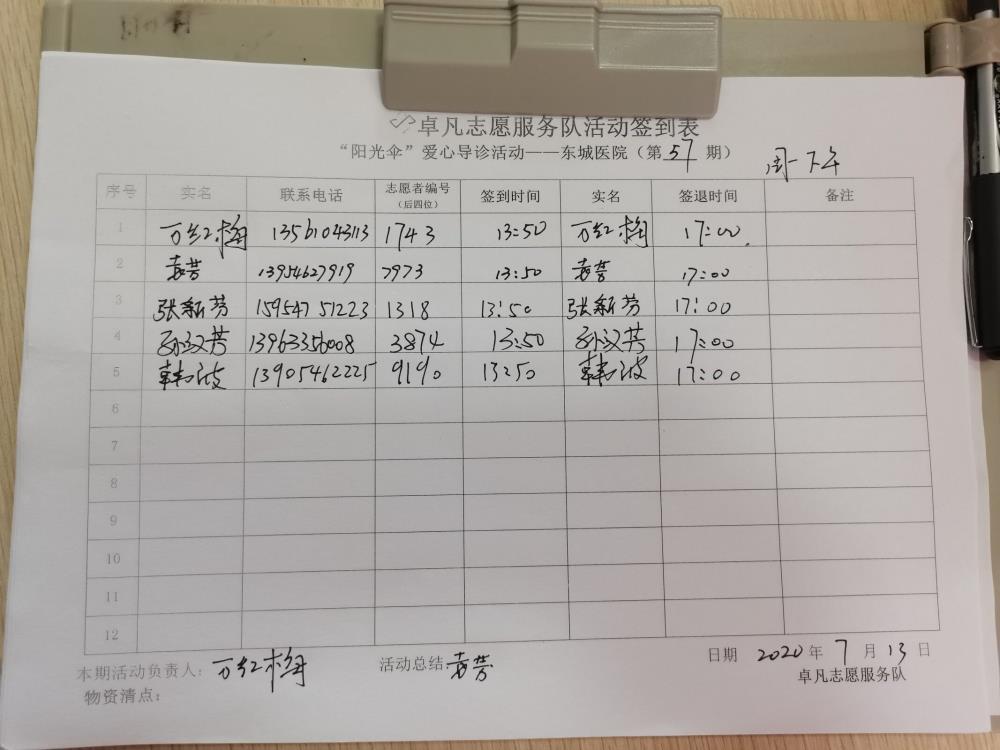 卓凡志愿服务队活动签到表
“阳光伞”爱心导诊活动——东城医院（第 57 期） 周一下午
序号 实名 联系电话 志愿者编号（后四位） 签到时间 实名 签退时间 备注
1 万红梅 13561043113 1743 13:50 万红梅 17:00
2 袁芳 13954627919 7973 13:50 袁芳 17:00
3 张新芳 15954751223 1318 13:50 张新芳 17:00
4 孙汉芳 13963356008 3874 13:50 孙汉芳 17:00
5 韩波 13905462225 9190 13:50 韩波 17:00
6
7
8
9
10
11
12
本期活动负责人：万红梅 活动总结：袁芳 日期 2020 年 7 月 13 日
物资清点： 卓凡志愿服务队